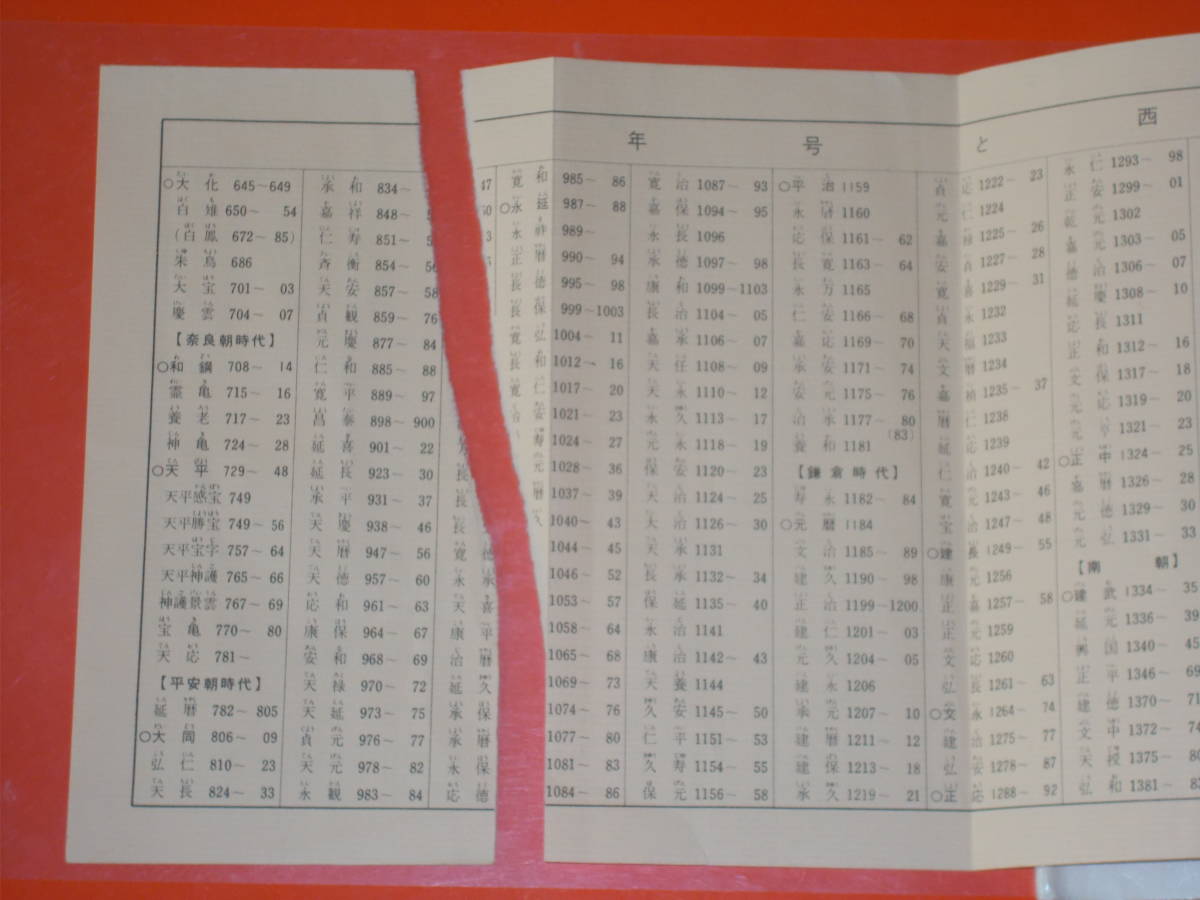 年号と西
○大化 645~649
白雉 650~ 54
(白鳳 672~ 85)
朱鳥 686
大宝 701~ 03
慶雲 704~ 07
【奈良朝時代】
○和銅 708~ 14
霊亀 715~ 16
養老 717~ 23
神亀 724~ 28
○天平 729~ 48
天平感宝 749
天平勝宝 749~ 56
天平宝字 757~ 64
天平神護 765~ 66
神護景雲 767~ 69
宝亀 770~ 80
天応 781~
【平安朝時代】
延暦 782~ 805
○大同 806~ 09
弘仁 810~ 23
天長 824~ 33
承和 834~ 47
嘉祥 848~ 50
仁寿 851~ 53
斉衡 854~ 56
天安 857~ 58
貞観 859~ 76
元慶 877~ 84
仁和 885~ 88
寛平 889~ 97
昌泰 898~900
延喜 901~ 22
延長 923~ 30
承平 931~ 37
天慶 938~ 46
天暦 947~ 56
天徳 957~ 60
応和 961~ 63
康保 964~ 67
安和 968~ 69
天禄 970~ 72
天延 973~ 75
貞元 976~ 77
天元 978~ 82
永観 983~ 84
寛和 985~ 86
○永延 987~ 88
永祚 989~
正暦 990~ 94
長徳 995~ 98
長保 999~1003
寛弘 1004~ 11
長和 1012~ 16
寛仁 1017~ 20
安 1021~ 23
万寿 1024~ 27
長元 1028~ 36
長暦 1037~ 39
長久 1040~ 43
寛徳 1044~ 45
永承 1046~ 52
天喜 1053~ 57
康平 1058~ 64
治暦 1065~ 68
延久 1069~ 73
承保 1074~ 76
承暦 1077~ 80
永保 1081~ 83
応徳 1084~ 86
寛治 1087~ 93
嘉保 1094~ 95
永長 1096
永徳 1097~ 98
康和 1099~1103
長治 1104~ 05
嘉承 1106~ 07
天仁 1108~ 09
天永 1110~ 12
永久 1113~ 17
元永 1118~ 19
保安 1120~ 23
天治 1124~ 25
大治 1126~ 30
天承 1131
長承 1132~ 34
保延 1135~ 40
永治 1141
康治 1142~ 43
天養 1144
久安 1145~ 50
仁平 1151~ 53
久寿 1154~ 55
保元 1156~ 58
○平治 1159
永暦 1160
応保 1161~ 62
長寛 1163~ 64
永万 1165
仁安 1166~ 68
嘉応 1169~ 70
承安 1171~ 74
安元 1175~ 76
治承 1177~ 80
(83)
養和 1181
【鎌倉時代】
寿永 1182~ 84
○元暦 1184
文治 1185~ 89
建久 1190~ 98
正治 1199~1200
建仁 1201~ 03
元久 1204~ 05
建永 1206
承元 1207~ 10
建暦 1211~ 12
建保 1213~ 18
承久 1219~ 21
貞応 1222~ 23
元仁 1224
嘉禄 1225~ 26
安貞 1227~ 28
寛喜 1229~ 31
貞永 1232
天福 1233
文暦 1234
嘉禎 1235~ 37
暦仁 1238
延応 1239
仁治 1240~ 42
寛元 1243~ 46
宝治 1247~ 48
○建長 1249~ 55
康元 1256
正嘉 1257~ 58
正元 1259
文応 1260
弘長 1261~ 63
○文永 1264~ 74
建治 1275~ 77
弘安 1278~ 87
○正応 1288~ 92
永仁 1293~ 98
正安 1299~ 01
乾元 1302
嘉元 1303~ 05
徳治 1306~ 07
延慶 1308~ 10
応長 1311
正和 1312~ 16
文保 1317~ 18
元応 1319~ 20
元亨 1321~ 23
○正中 1324~ 25
嘉暦 1326~ 28
元徳 1329~ 30
元弘 1331~ 33
【南朝】
○建武 1334~ 35
延元 1336~ 39
興国 1340~ 45
正平 1346~ 69
建徳 1370~ 71
文中 1372~ 74
天授 1375~ 80
弘和 1381~ 83